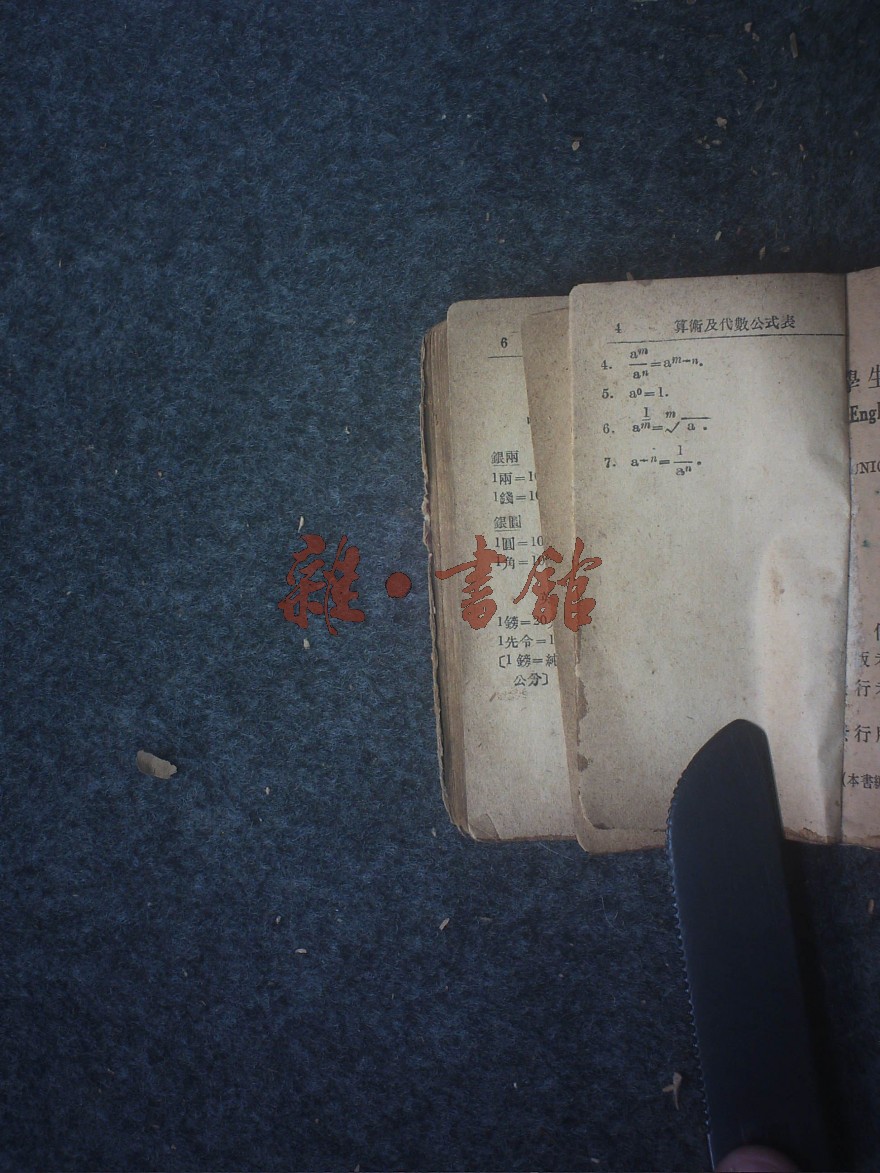 6
銀兩
1兩=10
1錢=10
銀圓
1圓=10
1角=10
1鎊=20
1先令=1
〔1鎊=純
公分〕
4 算術及代數公式表
4. aᵐ/aⁿ=aᵐ⁻ⁿ.
5. a⁰=1.
6. a^(1/m)=ᵐ√a.
7. a⁻ⁿ=1/aⁿ.
學生
Engl
UNIO
行
行
(本書
雜·書館